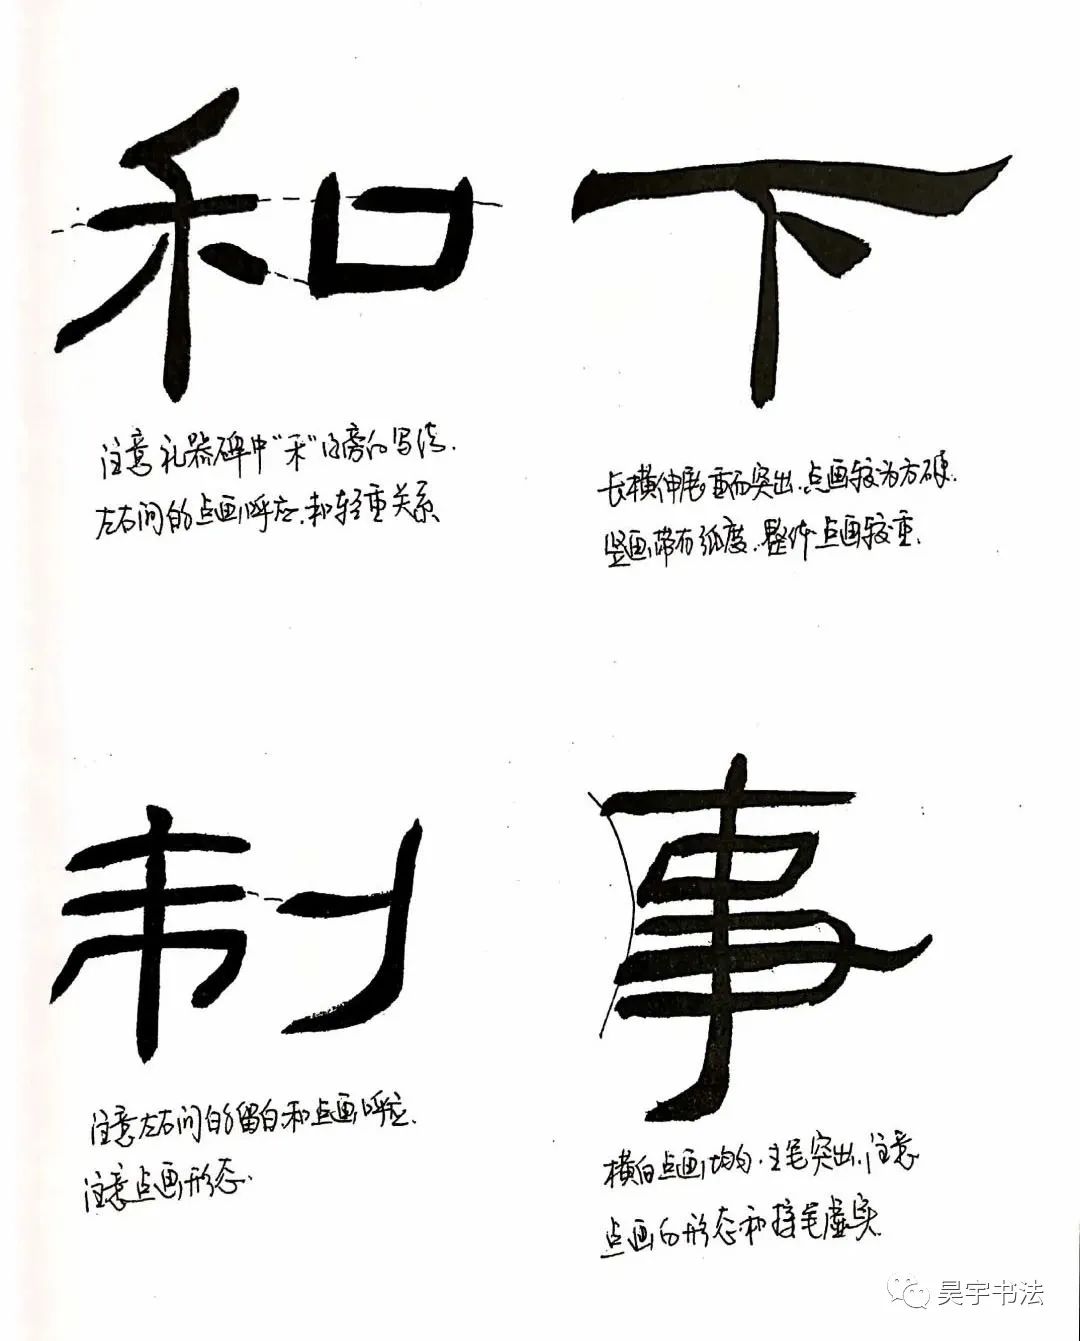 和
下
注意礼器碑中“禾”旁的写法.
左右间的点画呼应.和轻重关系
长横伸展重而突出.点画较为方硬.
竖画带有弧度.整体点画较重.
制
事
注意左右间的留白和点画呼应.
注意点画形态.
横向点画均匀.主笔突出.注意
点画的形态和接笔虚实.
昊宇书法